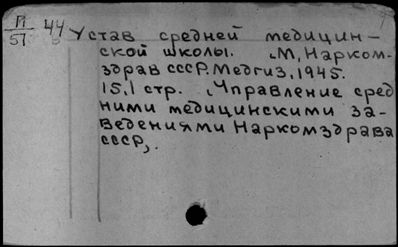 П
57
44
Устав средней медицин-
ской школы. М, Нарком-
здрав СССР. Медгиз, 1945.
15,1 стр. Управление сред
ними медицинскими за-
ведениями Наркомздрава
СССР,